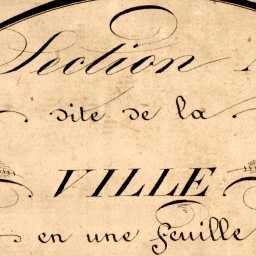 Section
dite de la
VILLE
en une feuille